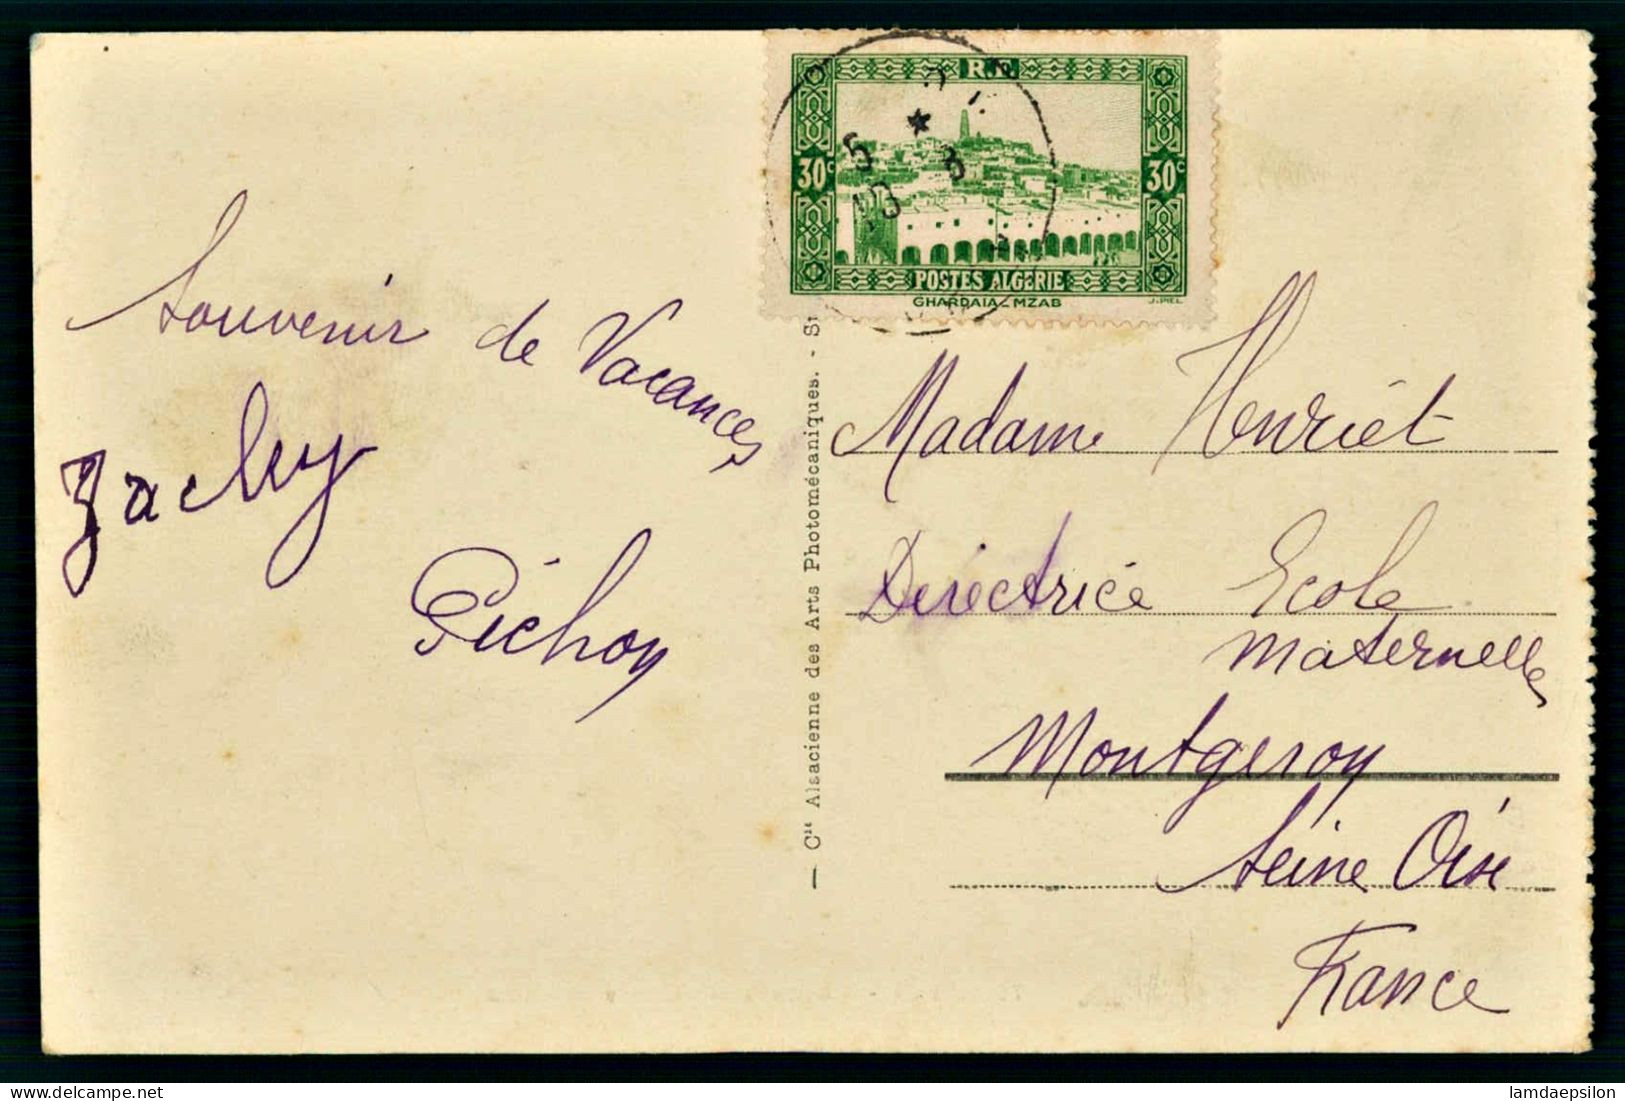 R.F.
30c
30c
POSTES ALGERIE
GHARDAIA_MZAB
J.PIEL
5 * 8
Souvenir de Vacances
Zachy
Pichon
— Cie Alsacienne des Arts Photomécaniques. - St
Madame Henriet
Directrice Ecole
Maternelle
Montgeron
Seine Oise
France
delcampe.net
lamdaepsilon